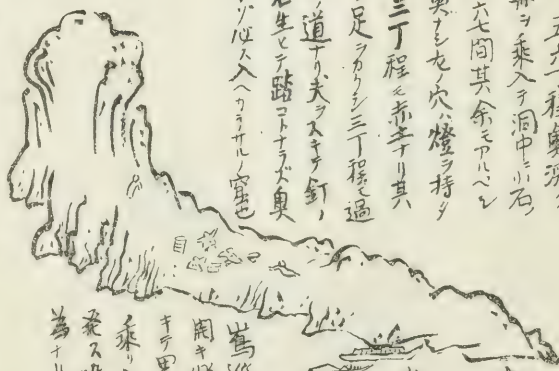 五六丁程奥深ク
舟ヲ乗入テ洞中ニ小石ノ
六七間其余モアルベシ
奥ナシ左ノ穴ハ燈ヲ持タ
三丁程モ赤土ナリ其
足ヲカクシ三丁程モ過
道ナリ夫ヲスキテ釘ノ
生ヒテ踏コトナラズ奥
必ス入ヘカラサルノ窟也
嶌
開キ
キテ
乗リ
発ス
為ナリ